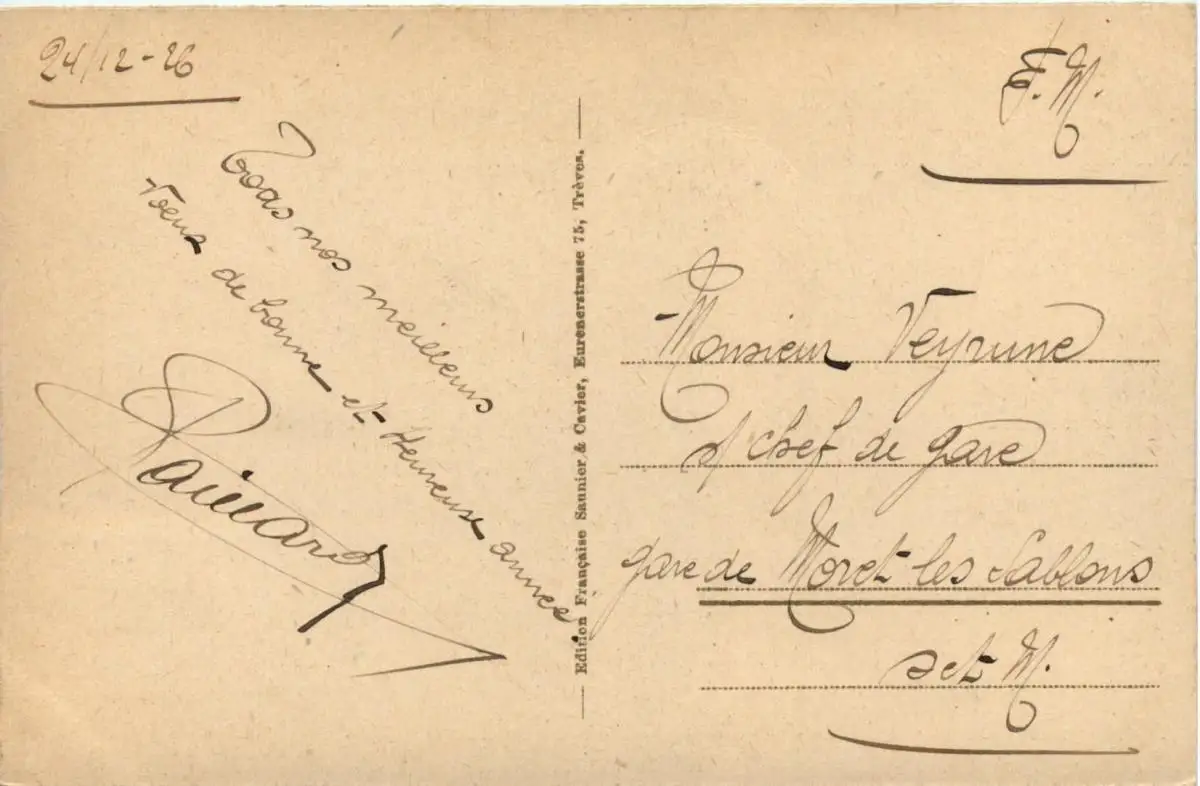 24/12-26
Tous nos meilleurs
Voeux de bonne et Heureuse année
Paillard
Edition Française Saunier & Cavier, Eurenerstrasse 75, Trèves.
F.M.
Monsieur Veyrune
s/ chef de gare
gare de Moret les Sablons
set M.